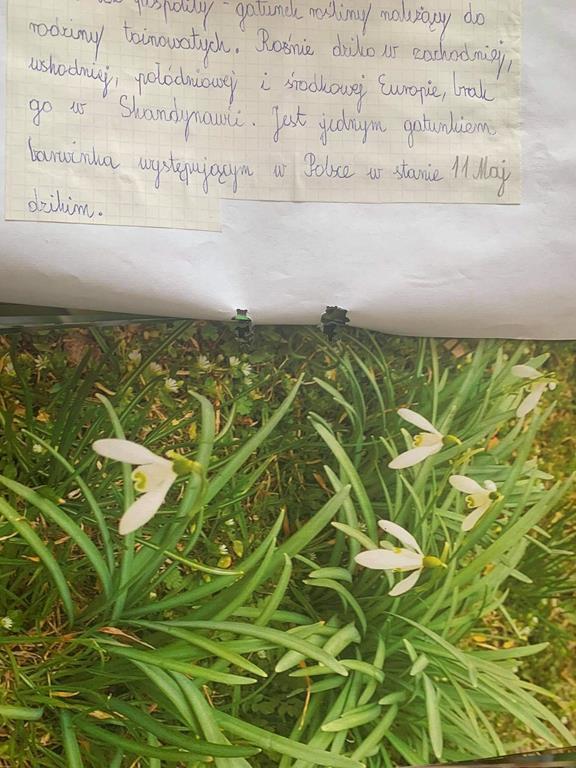 pospolity - gatunek rośliny należący do
rodziny toinowatych. Rośnie dziko w zachodniej,
wshodniej, połódniowej i środkowej Europie, brak
go w Skandynawi. Jest jednym gatunkiem
barwinka występującym w Polsce w stanie 11 Maj
dzikim.